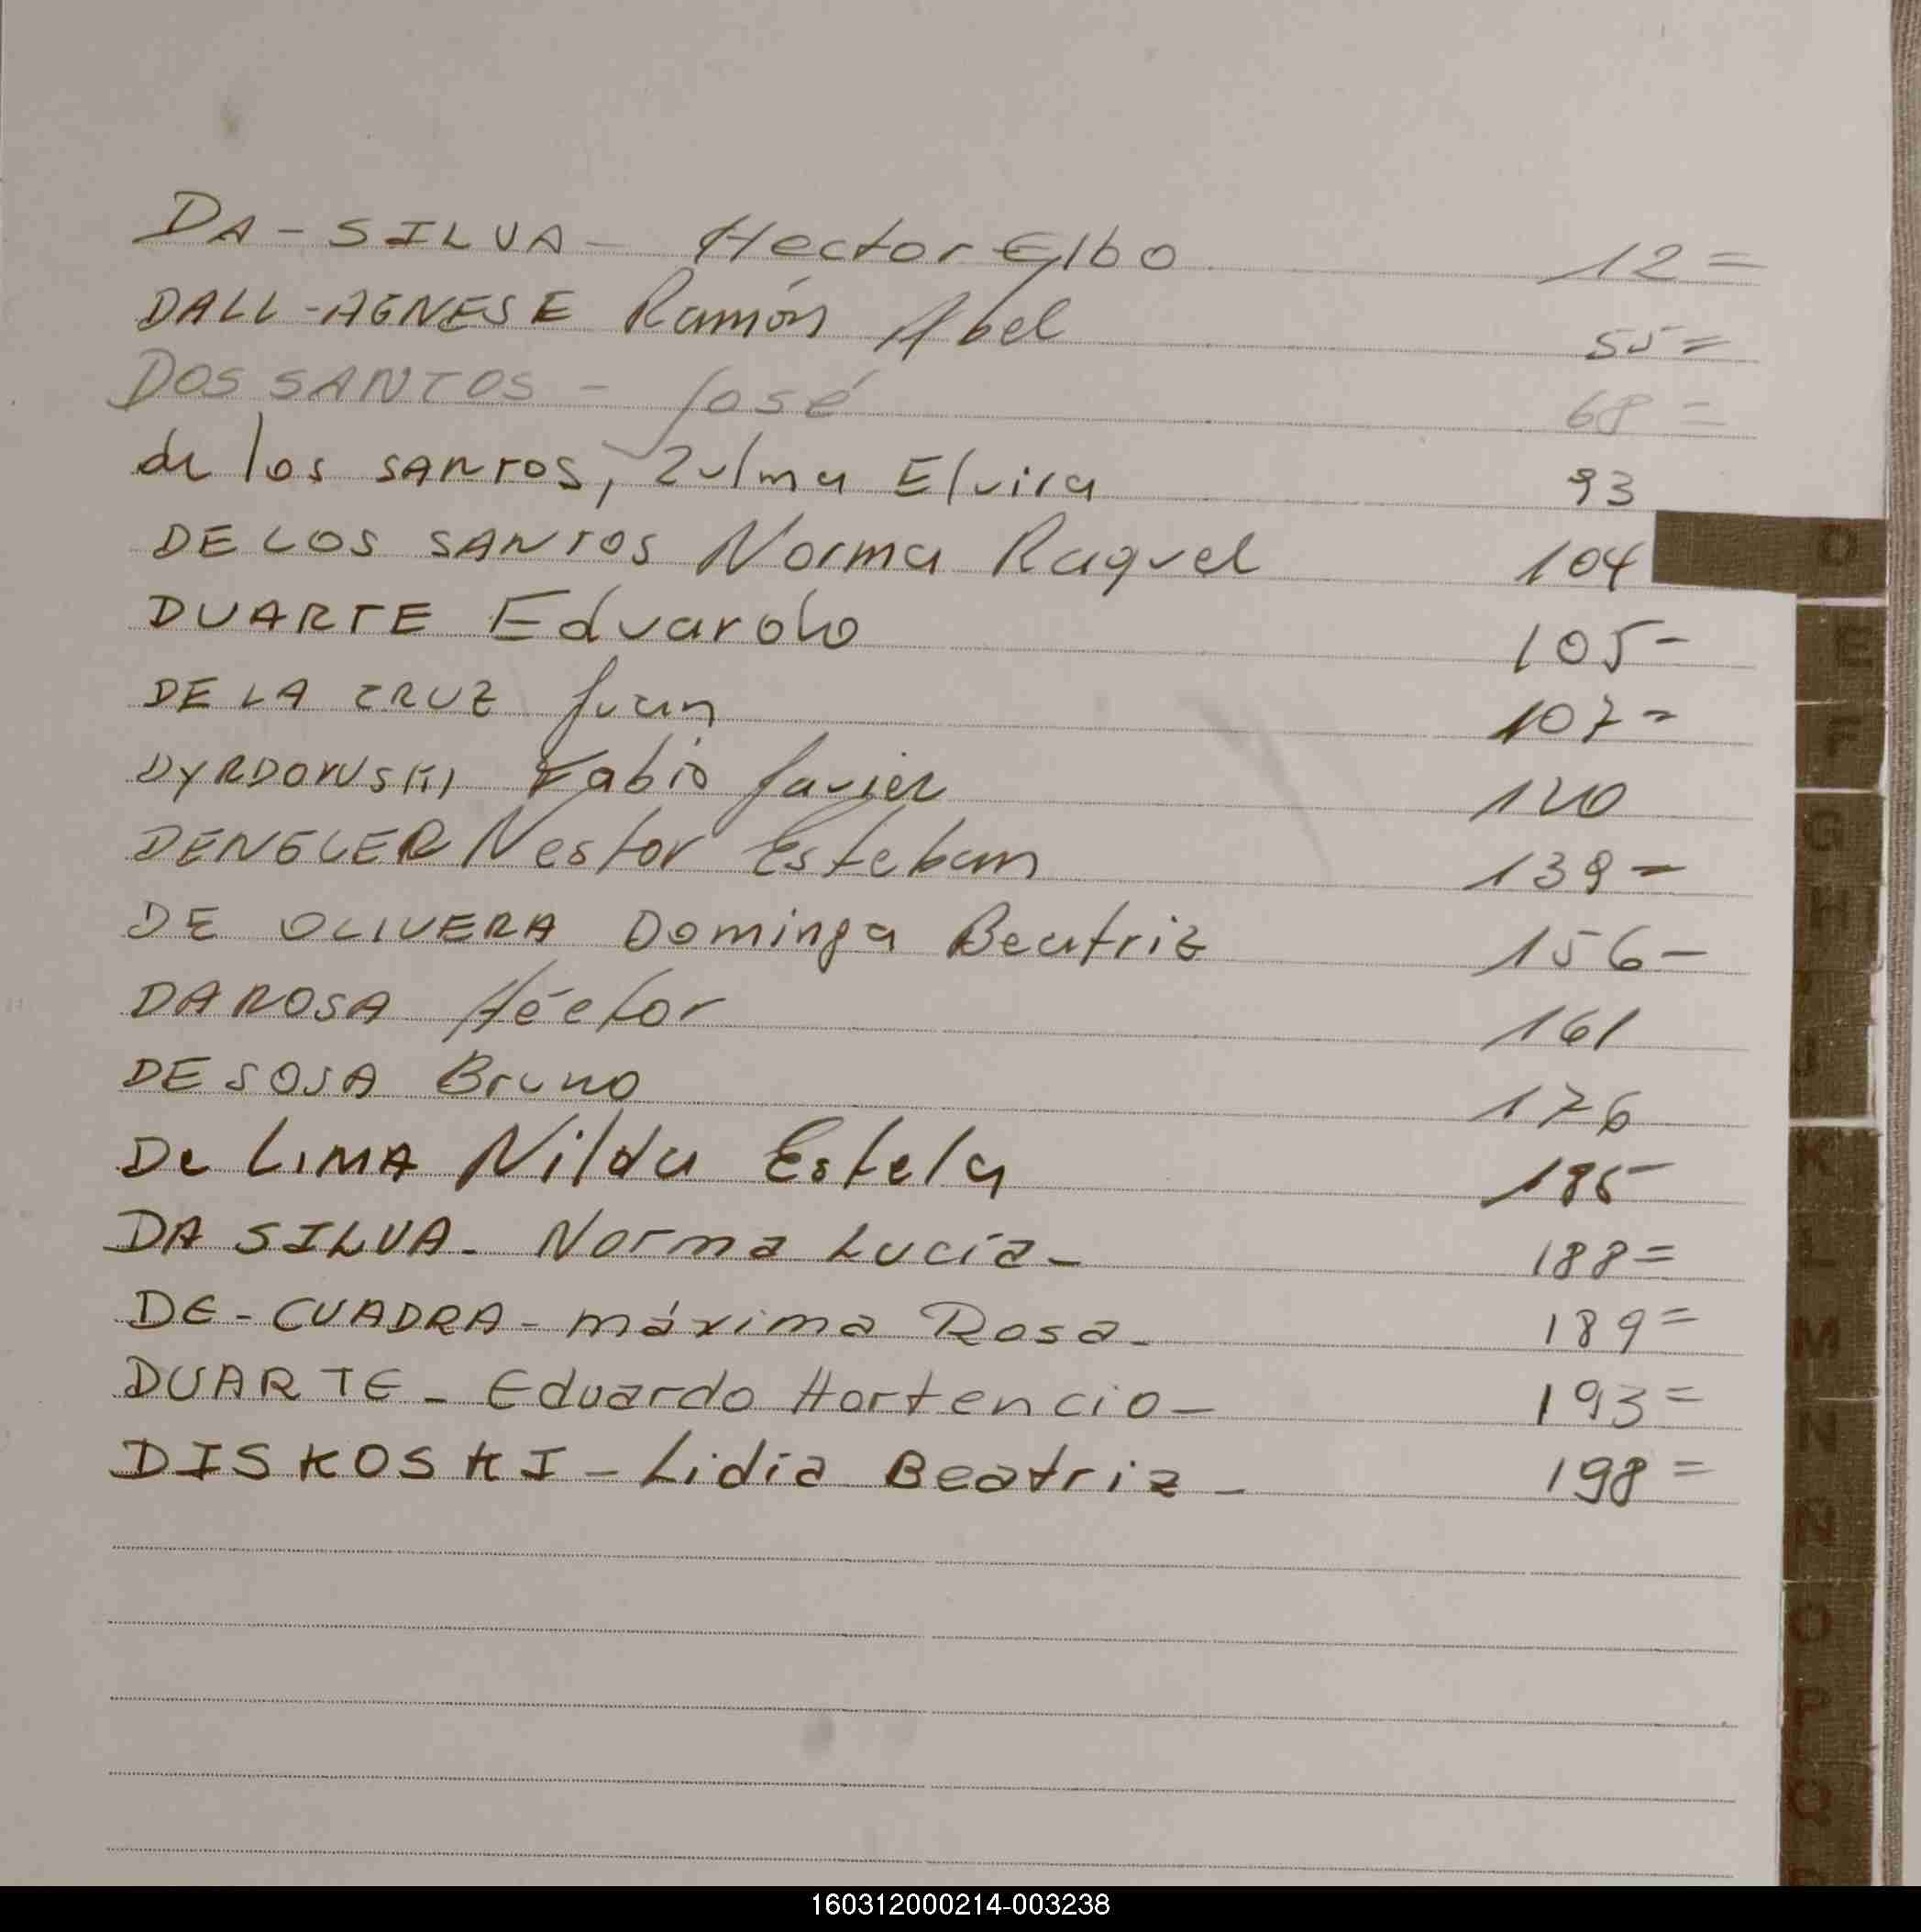 DA-SILVA- Hector Elbo 12=
DALL-AGNESE Ramón Abel 55=
DOS SANTOS - José 68=
de los SANTOS, Zulma Elvira 93
DE LOS SANTOS Norma Raquel 104
DUARTE Eduardo 105-
DE LA CRUZ Juan 107-
Fabio Javier 120
DENGLER Nestor Esteban 139-
DE OLIVERA Dominga Beatriz 156-
DA ROSA Héctor 161
DE SOSA Bruno 176
De LIMA Nilda Estela
DA SILVA- Norma Lucía- 188=
DE-CUADRA-máxima Rosa- 189=
DUARTE- Eduardo Hortencio- 193=
DISKOSKI-Lidia Beatriz- 198=
D
E
F
G
H
I
J
K
L
M
N
Ñ
O
P
Q
160312000214-003238